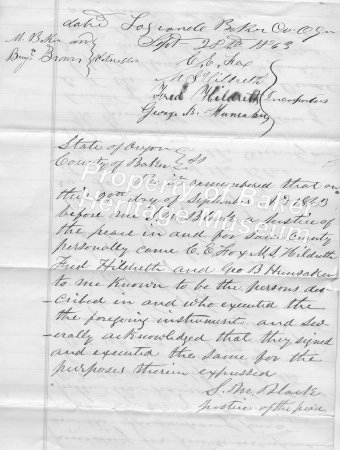 date Lagrande Baker Co Ogn
Sept 28th 1863
M. Baker and
Benj. Brown } Witnesses
C. E. Fox
M S Hildreth
Fred Hildreth } Incorporators
George B. Hunsaker
State of Oregon
County of Baker } SS
Be it remembered that on
this day of September AD 1863
before me S. M. Black a Justice of
the peace in and for said County
personally came C. E. Fox M. S Hildreth
Fred Hildreth and Geo B Hunsaker
to me known to be the persons des-
cribed in and who executed the
the foregoing instrument and sev-
erally acknowledged that they signed
and executed the same for the
purposes therein expressed
S. M. Black
Justice of the peace
Property of Baker
Heritage Museum